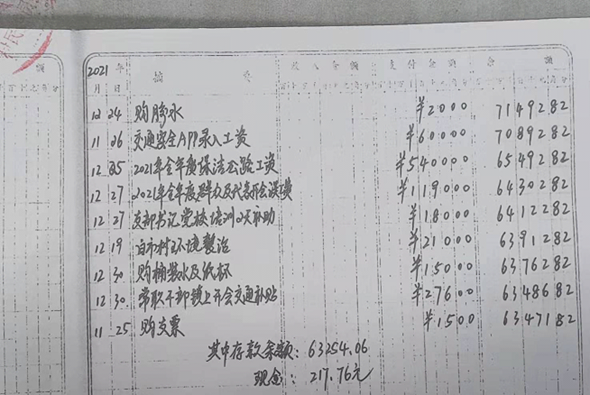 2021年 摘 要 收入金额 支付金额 余 额
月 日
12 24 购胶水 ¥2000 7149282
11 26 交通安全APP录入工资 ¥60000 7089282
12 25 2021年全年度保洁公路工资 ¥540000 6549282
12 27 2021年全年度群众及代表开会误工费 ¥119000 6430282
12 27 支部书记党校培训2天补助 ¥18000 6412282
12 19 村环境整治 ¥21000 6391282
12 30 购桶装水及纸杯 ¥15000 6376282
12 30 常职干部镇上开会交通补贴 ¥27600 6348682
11 25 购支票 ¥1500 6347182
其中存款余额：63254.06
现金：217.76元